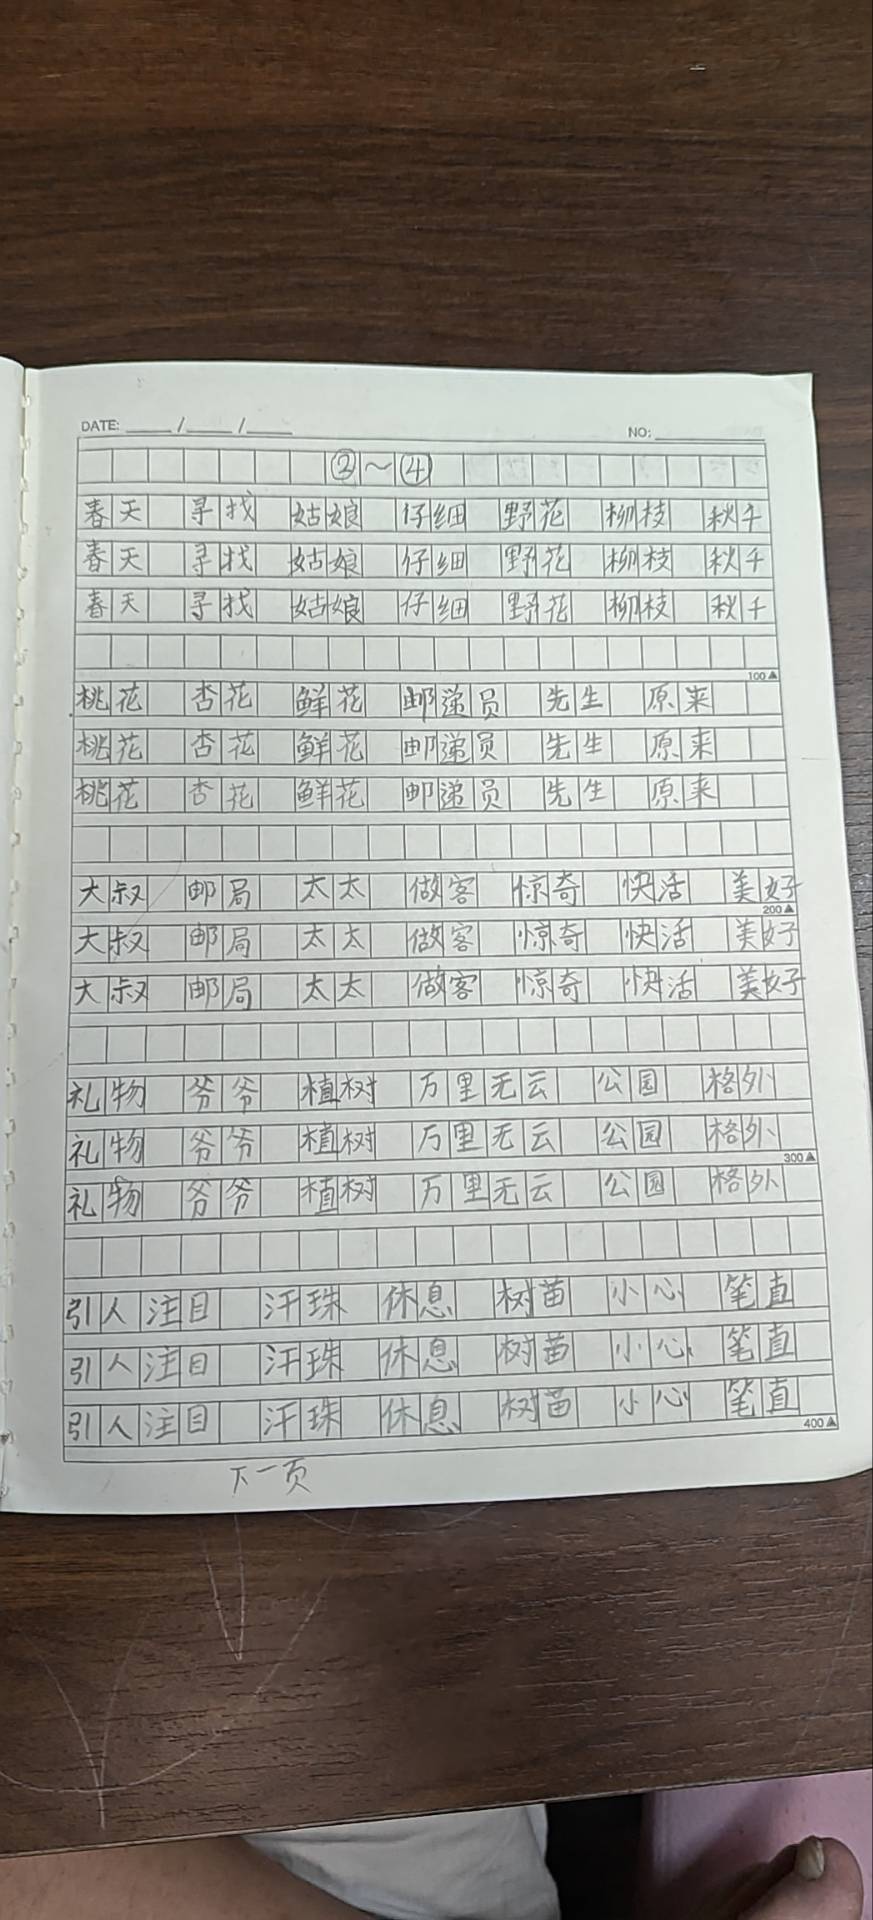 DATE: ____/____/____ NO:
②~④
春天 寻找 姑娘 仔细 野花 柳枝 秋千
春天 寻找 姑娘 仔细 野花 柳枝 秋千
春天 寻找 姑娘 仔细 野花 柳枝 秋千
100▲
桃花 杏花 鲜花 邮递员 先生 原来
桃花 杏花 鲜花 邮递员 先生 原来
桃花 杏花 鲜花 邮递员 先生 原来
大叔 邮局 太太 做客 惊奇 快活 美好
200▲
大叔 邮局 太太 做客 惊奇 快活 美好
大叔 邮局 太太 做客 惊奇 快活 美好
礼物 爷爷 植树 万里无云 公园 格外
礼物 爷爷 植树 万里无云 公园 格外
300▲
礼物 爷爷 植树 万里无云 公园 格外
引人注目 汗珠 休息 树苗 小心 笔直
引人注目 汗珠 休息 树苗 小心 笔直
引人注目 汗珠 休息 树苗 小心 笔直
400▲
下一页